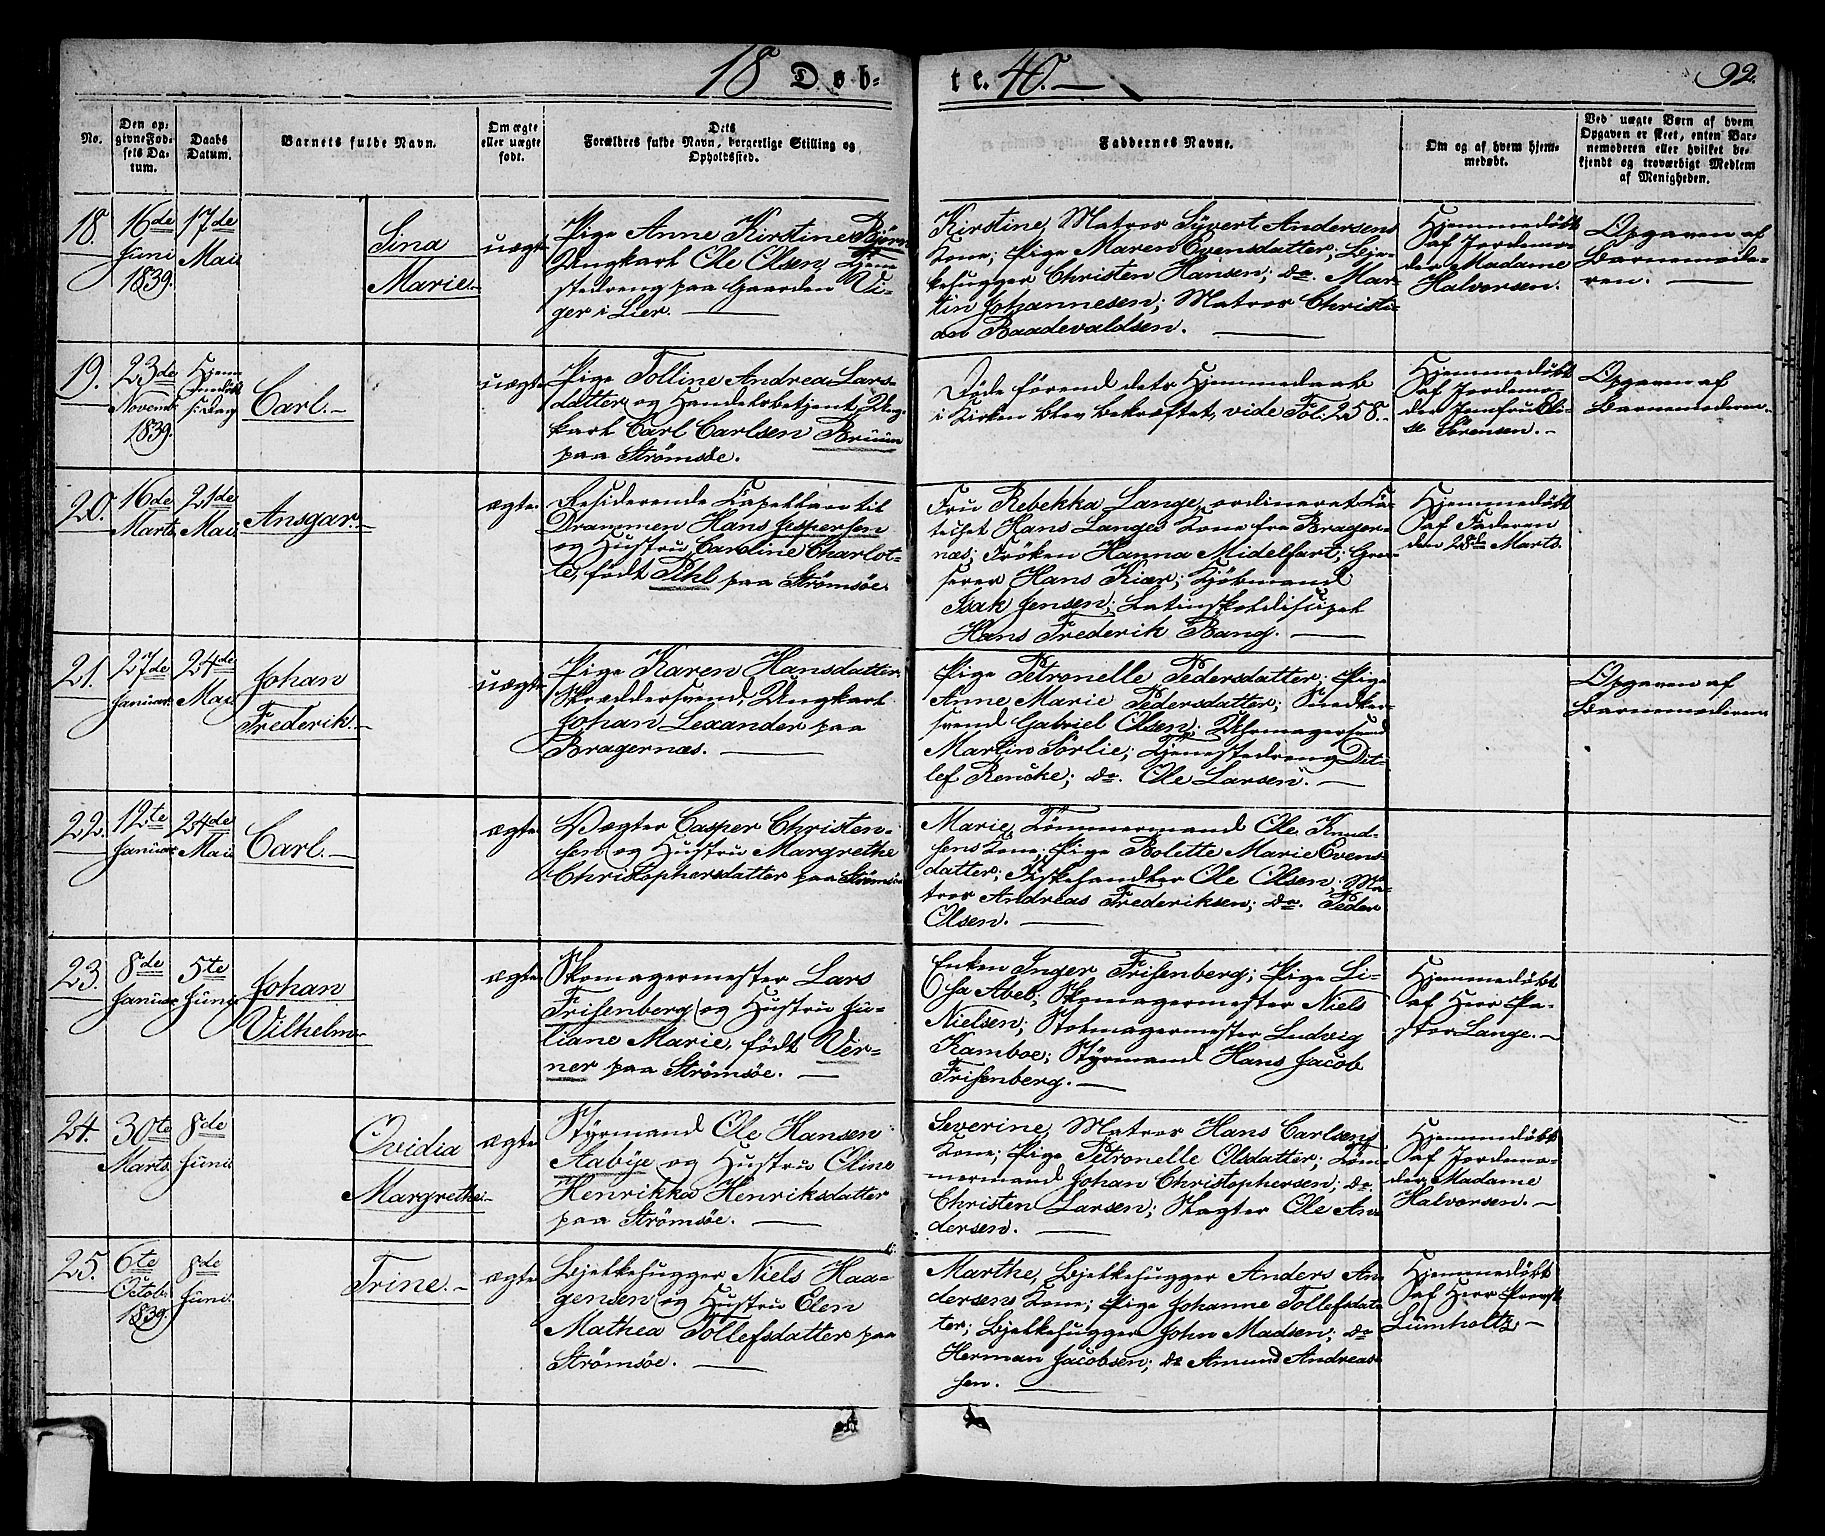 18 Døb-
te. 40.
92.
No.
Den op-
givne Fød-
sels Da-
tum.
Daabs
Datum.
Barnets fulde Navn.
Om ægte
eller uægte
født.
Dets
Forældres fulde Navn, borgerlige Stilling og
Opholdssted.
Faddernes Navne.
Om og af hvem hjem-
medøbt.
Ved uægte Børn af hvem
Opgaven er skeet, enten Bar-
nemoderen eller hvilket be-
kjendt og troværdigt Medlem
af Menigheden.
18.
16de
Juni
1839.
17de
Mai
Sina
Marie.
uægte
Pige Anne Kirstine Bjørn
Ungkarl Ole Olsen, Tjene
stedreng paa Gaarden Vi-
ger i Lier.
Kirstine, Matros Syvert Andersens
Kone; Pige Maren Evensdatter; Bjel-
kehugger Christen Hansen; do. Mar-
tin Johannesen; Matros Christi-
an Baadevaldsen.
Hjemmedøbt
af Jordemo-
der Madame
Halvorsen.
Opgaven af
Barnemode-
ren.
19.
23de
Novemb.
1839.
Hjem-
medøbt
s. Dag
Carl.
uægte
Pige Tolline Andrea Lars-
datter og Handelsbetjent, Ung-
karl Carl Carlsen Bruun
paa Strømsøe.
Døde førend dets Hjemmedaab
i Kirken blev bekræftet, vide Fol. 258.
Hjemmedøbt
af Jordemo-
der Jomfru Eli-
se Sørensen.
Opgaven af
Barnemoderen.
20.
16de
Marts
21de
Mai
Ansgar.
ægte.
Residerende Capellan til
Drammen Hans Jespersen
og Hustru Caroline Charlot-
te, født Pihl paa Strømsøe.
Fru Rebekka Lange, ordineret Ca-
techet Hans Langes Kone fra Brager-
næs; Frøken Hanna Midelfart; Gros-
serer Hans Kiær; Kjøbmand
Isak Jensen; Latinskoledisipel
Hans Frederik Bang.
Hjemmedøbt
af Faderen
den 28de Marts.
21.
27de
Januar
24de
Mai
Johan
Frederik.
uægte
Pige Karen Hansdatter
Skræddersvend, Ungkarl
Johan Lexander paa
Bragernæs.
Pige Petronelle Pedersdatter; Pige
Anne Marie Pedersdatter; Snedker-
svend Gabriel Olsen; Uhrmagersvend
Martin Sørlie; Tjenestedreng Dit-
lef Rencke; do. Ole Larsen.
Opgaven af
Barnemoderen
22.
12te
Januar
24de
Mai
Carl.
ægte
Vægter Casper Christen-
sen og Hustru Margrethe
Christophersdatter paa Strømsøe
Marie, Tømmermand Ole Knud-
sens Kone; Pige Bolette Marie Evens-
datter; Fiskehandler Ole Olsen; Ma-
tros Andreas Frederiksen; do. Peder
Olsen.
23.
8de
Januar
5te
Juni
Johan
Vilhelm
ægte
Skomagermester Lars
Frisenberg og Hustru Ju-
liane Marie, født Ver-
ner paa Strømsøe.
Enken Inger Frisenberg; Pige Li-
sa Abel; Skomagermester Niels
Nielsen; Stolmagermester Ludvig
Kamboe; Styrmand Hans Jacob
Frisenberg.
Hjemmedøbt
af Herr Pa-
stor Lange.
24.
30te
Marts
8de
Juni
Ovidia
Margrethe.
ægte
Styrmand Ole Hansen
Aabye og Hustru Oline
Henrikka Henriksdatter
paa Strømsøe.
Severine, Matros Hans Carlsens
Kone; Pige Petronelle Olsdatter; Tøm-
mermand Johan Christophersen; do.
Christen Larsen; Slagter Ole An-
dersen.
Hjemmedøbt
af Jordemo-
der Madame
Halvorsen.
25.
6te
Octob.
1839.
8de
Juni.
Trine.
ægte
Bjelkehugger Niels Haa-
gensen og Hustru Elen
Mathea Tollefsdatter paa
Strømsøe.
Marthe, Bjelkehugger Anders An-
dersens Kone; Pige Johanne Tollefsdat-
ter; Bjelkehugger John Madsen; do
Herman Jacobsen; do Amund Andreas-
sen.
Hjemmedøbt
af Herr Provst
Lumholtz.